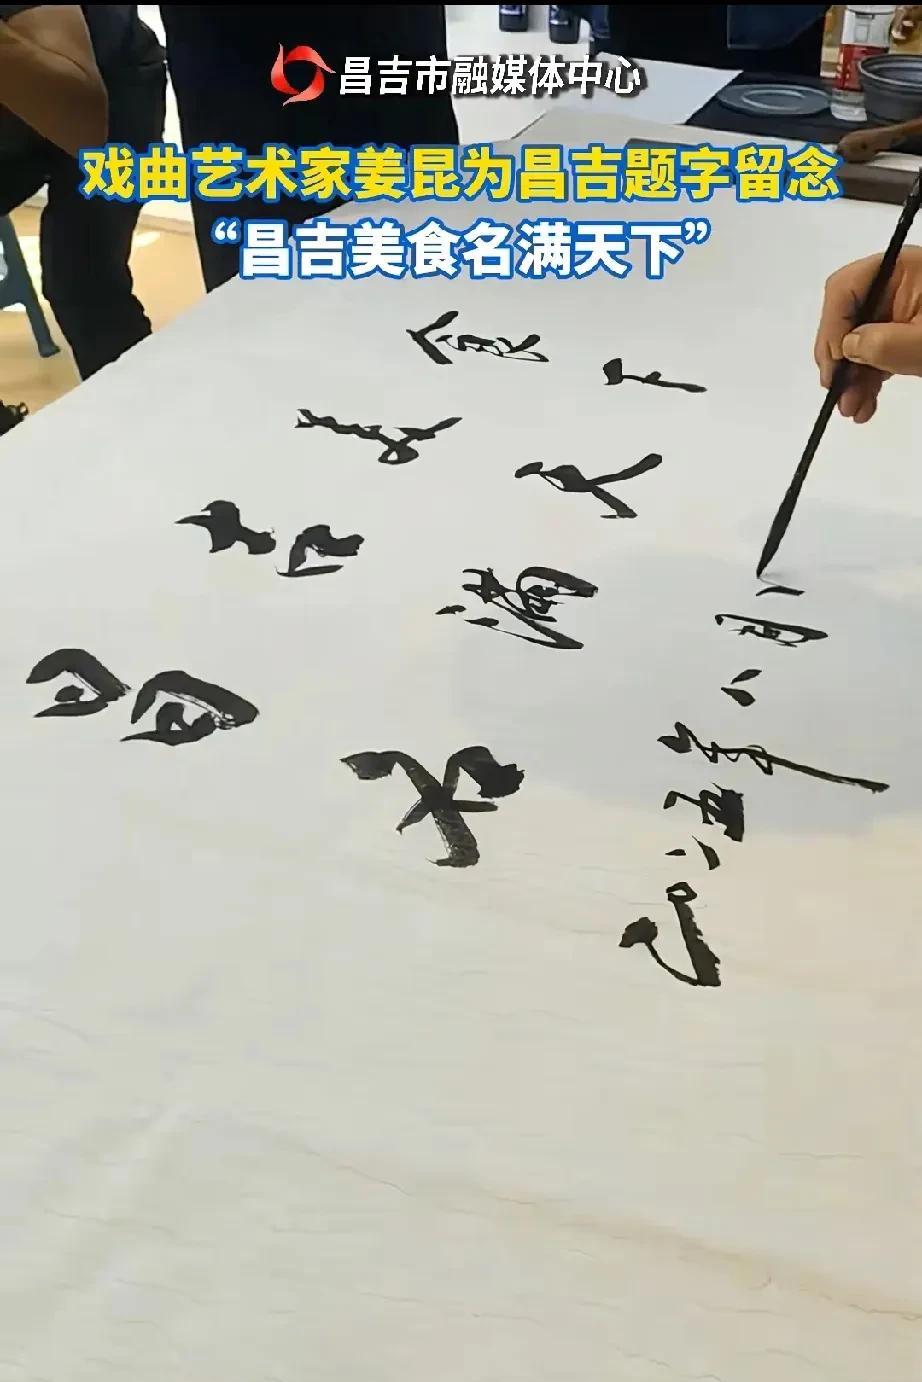 昌吉市融媒体中心
戏曲艺术家姜昆为昌吉题字留念
“昌吉美食名满天下”
昌吉美食
名满天下
二〇二五年八月